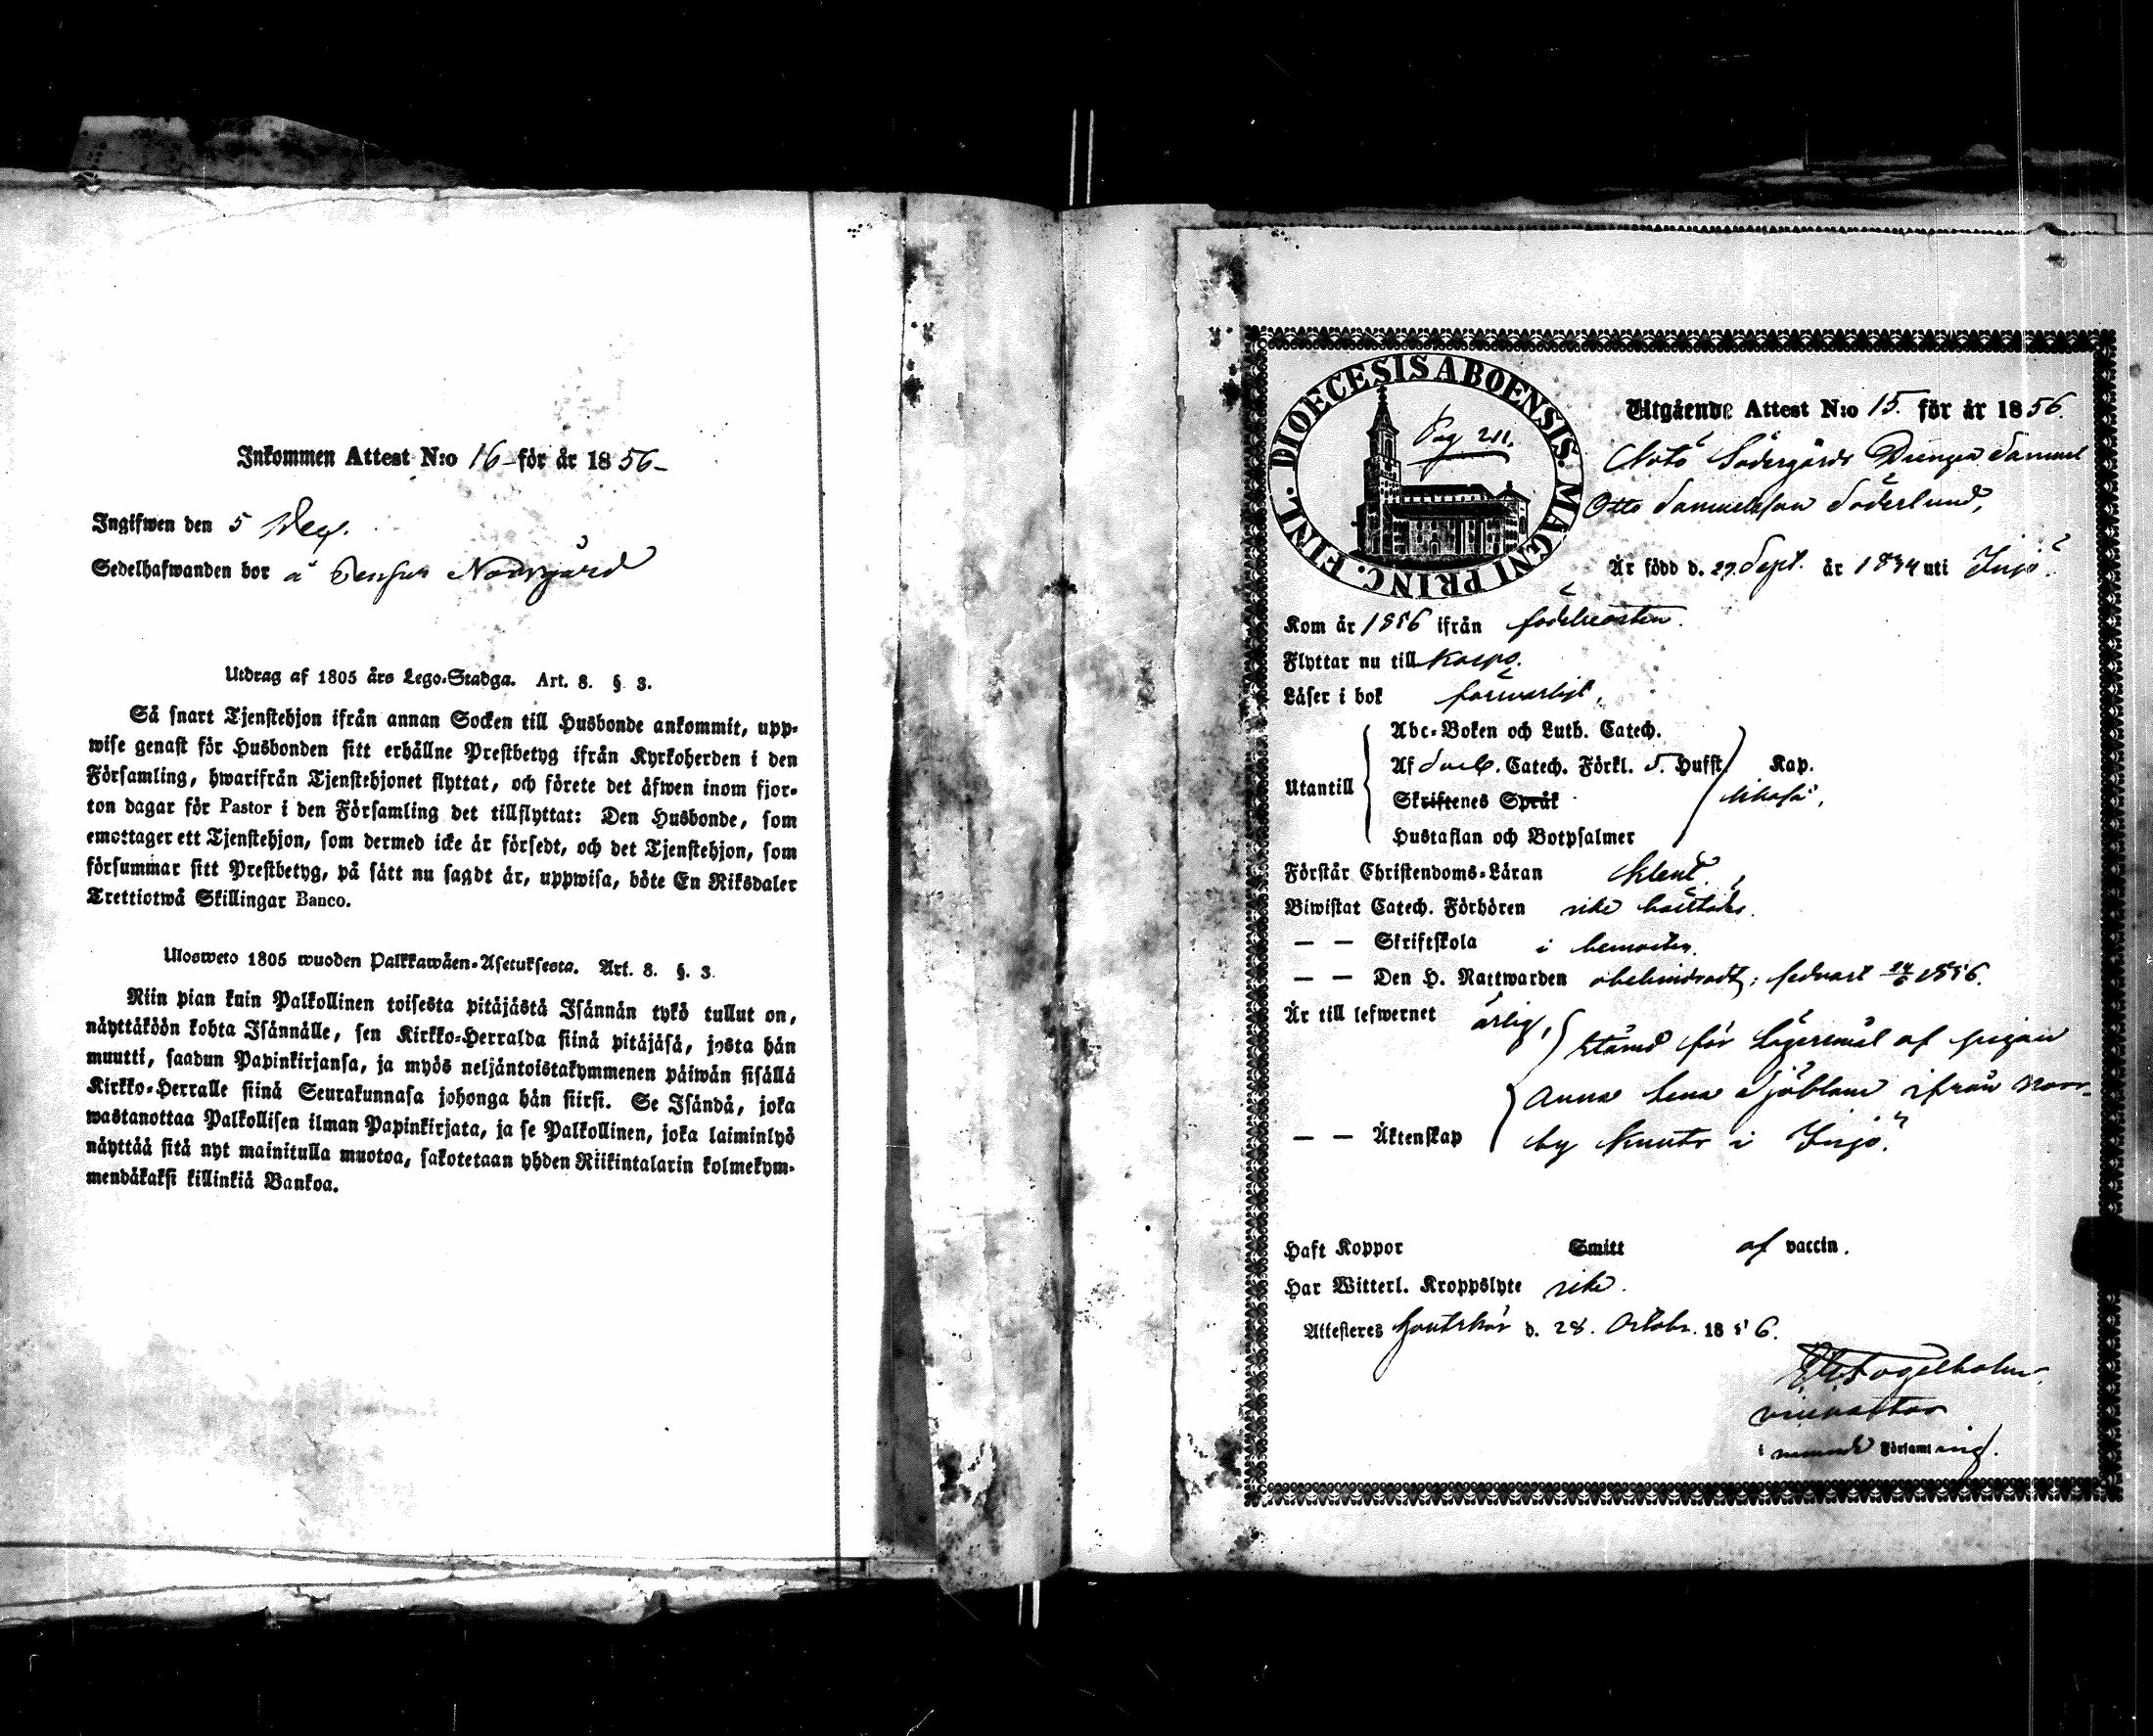 Inkommen Attest N:o 16 för år 1856
Ingifwen den 5
Sedelhafwanden bor å Norrgård
Utdrag af 1805 års Lego-Stadga. Art. 8. § 3.
Så snart Tjenstehjon ifrån annan Socken till Husbonde ankommit, upp-
wise genast för Husbonden sitt erhållne Prestbetyg ifrån Kyrkoherden i den
Församling, hwarifrån Tjenstehjonet flyttat, och förete det äfwen inom fjor-
ton dagar för Pastor i den Församling det tillflyttat: Den Husbonde, som
emottager ett Tjenstehjon, som dermed icke är försedt, och det Tjenstehjon, som
försummar sitt Prestbetyg, på sätt nu sagdt är, uppwisa, böte En Riksdaler
Trettiotwå Skillingar Banco.
Ulosweto 1805 wuoden Palkkawäen-Asetuksesta. Art. 8. §. 3.
Niin pian kuin Palkollinen toisesta pitäjästä Isännän tykö tullut on,
näyttäköön kohta Isännälle, sen Kirkko-Herralda siinä pitäjäsä, josta hän
muutti, saadun Papinkirjansa, ja myös neljäntoistakymmenen päiwän sisällä
Kirkko-Herralle siinä Seurakunnasa johonga hän siirsi. Se Isändä, joka
wastanottaa Palkollisen ilman Papinkirjata, ja se Palkollinen, joka laiminlyö
näyttää sitä nyt mainitulla muotoa, sakotetaan yhden Riikintalarin kolmekym-
mendäkaksi killinkiä Bankoa.
DIOECESIS ABOENSIS. MAGNI PRINC. FINL.
Pag 211.
Utgående Attest N:o 15. för år 1856.
Nötö Södergårds Drengen Samuel
Otto Samuelsson Söderlund,
Är född d. 27 Sept. år 1834 uti Iniö.
Kom år 1856 ifrån födelseorten.
Flyttar nu till Korpo.
Läser i bok försvarligt,
Utantill
Abc-Boken och Luth. Catech.
Af Catech. Förkl. Hufst. Kap.
Skriftenes Språk
likaså,
Hustaflan och Botpsalmer
Förstår Christendoms-Läran klent,
Biwistat Catech. Förhören icke
— — Skriftskola i hemorten.
— — Den H. Nattwarden obehindradt; sednast 24/6 1856.
Är till lefwernet ärlig,
stämd för lägersmål af pigan
Anna Lena Sjöblom ifrån Norr-
— — Äktenskap
by Knuts i Iniö.
Haft Koppor Smitt af vaccin.
Har Witterl. Kroppslyte icke.
Attesteres Houtskär d. 28. Octobr. 1856.
Fogelholm,
vicepastor
i nämnde Församling.